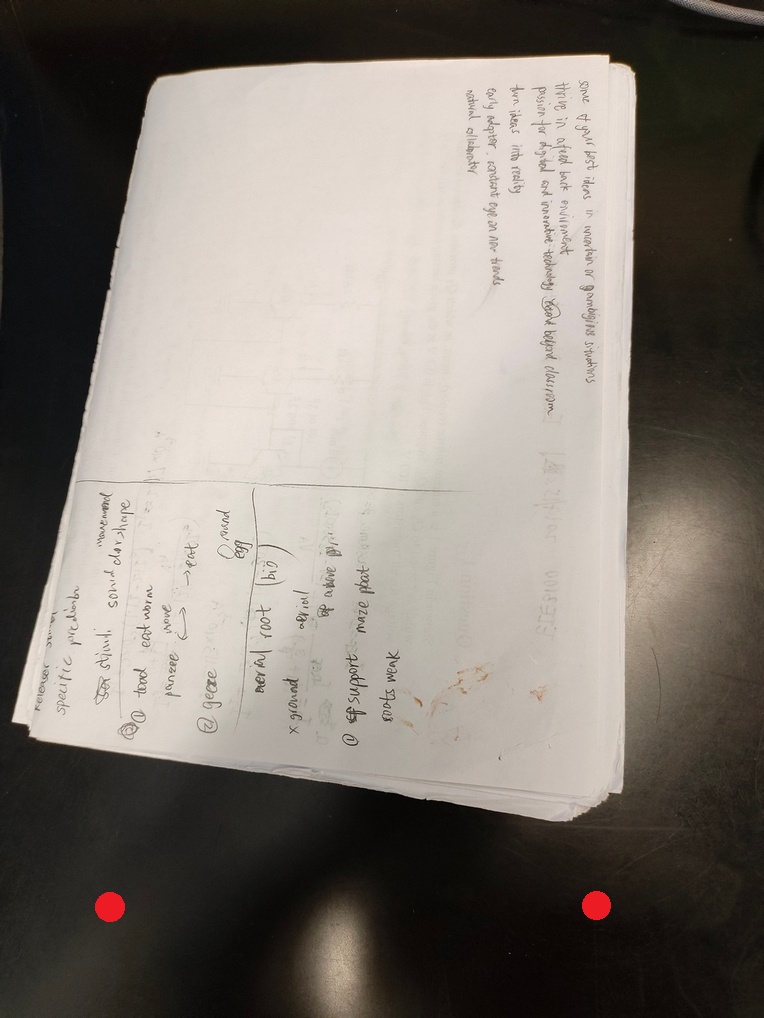 some of your best ideas in uncertain or ambiguous situations
thrive in a feed back environment
passion for digital and innovative technology extend beyond classroom
turn ideas into reality
early adopter, constant eye on new trends
natural collaborator
specific
stimuli sound color shape
movement
① toad eat worm
move → eat
② geese
round
egg
aerial root (bio)
x ground aerial
① support maze plant
roots weak